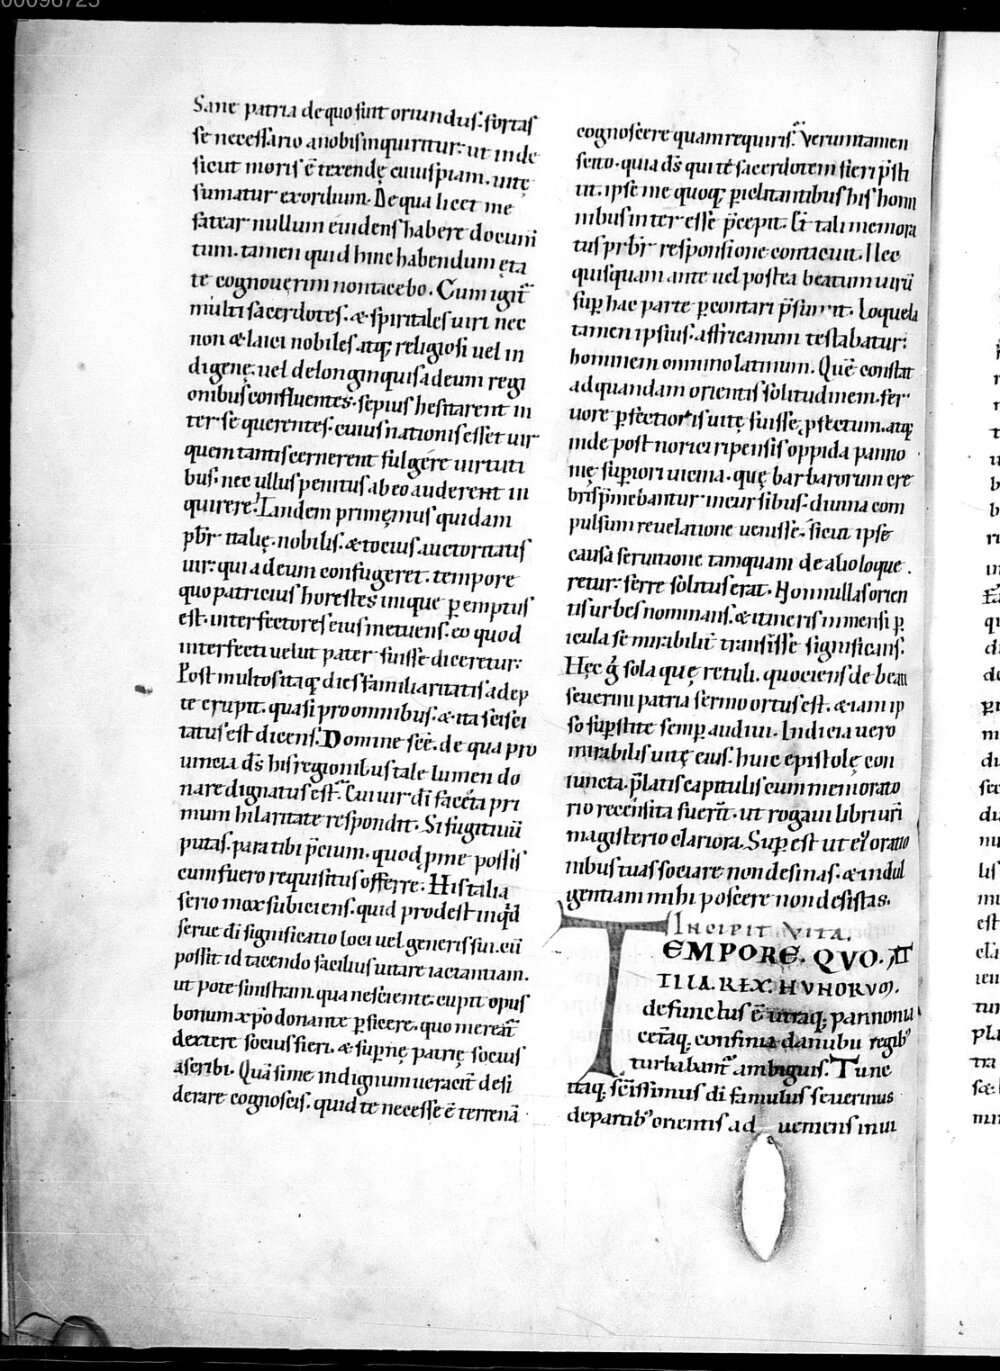 00098725
Sane patria de quo fuit oriundus. fortas
se necessario a nobis inquiritur: ut inde
sicut moris ē texendę cuiuspiam. uitę
sumatur exordium. De qua licet me
fatear nullum euidens habere documn
tum. tamen quid hinc habendum ęta
te cognouerim non tacebo. Cum igit̄
multi sacerdotes. & spiritales uiri nec
non & laici nobiles. atq; religiosi uel in
digenę. uel de longinquis ad eum regi
onibus confluentes. sepius hesitarent in
ter se querentes. cuius nationis esset uir
quem tantis cernerent fulgere uirtuti
bus. nec ullus penitus ab eo auderent in
quirere. Tandem primęnius quidam
pb̄r italię. nobilis. & tocius auctoritatis
uir. qui ad eum confugeret. tempore
quo patricius horestes inique p̱emptus
est. interfectores eius metuens. eo quod
interfecti uelut pater fuisse diceretur.
Post multos itaq; dies familiaritatis adep
te erupit. quasi pro omnibus. & ita sciscı
tatus est dicens. Domine scē. de qua pro
uincia d̄s his regionibus tale lumen do
nare dignatus est. Cui uir dī faceta pri
mum hilaritate respondit. Si fugitiuū
putas. para tibi p̄cium. quod p̱ me possis
cum fuero requisitus offerre. His talia
serio mox subiciens. quid prodest inq̄d
seruo dī significatio loci uel generis sui. cū
possit id tacendo facilius uitare iactantiam.
ut pote sinistram. qua nesciente. cupit opus
bonum xp̄o donante p̱ficere. quo mereat̄
dextere socius fieri. & sup̱nę patrię socius
ascribi. Quā si me indignum ueracit̄ desi
derare cognoscis. quid te necesse ē terrenā
cognoscere quam requiris. Veruntamen
scito. quia d̄s qui te sacerdotem fieri p̄sti
tit. ipse me quoq; p̱iclitantibus his homi
nibus interesse p̄cepit. Et tali memora
tus pr̄br̄ responsione conticuit. Nec
quisquam ante uel postea beatum uirū
sup̱ hac parte p̱contari p̄sumsit. Loquela
tamen ipsius. affricanum testabatur:
hominem omnino latinum. Quē constat
ad quandam orientis solitudinem. fer
uore p̱fectioris uitę fuisse p̱fectum. atq;
inde post norici ripensis oppida panno
nię sup̱iori uicina. quę barbarorum cre
bris p̱mebantur incursibus. diuina com
pulsum reuelatione uenisse. sicut ipse
causa seruitione tamquam de alio loque
retur. ferre solitus erat. Nonnullas orien
tis urbes nominans. & itineris inmensi p̱
icula se mirabilit̄ transisse significans.
Hęc ḡ sola quę retuli. quociens de beati
seuerini patria sermo ortus est. & iam ip
so sup̱stite semp̱ audiui. Indicia uero
mirabilis uitę eius. huic epistolę con
iuncta. p̄latis capitulis cum memorato
rio recensita fuerīt. ut rogaui libri uri
magisterio clariora. Sup̱est ut et oratio
nibus tuas sociare non desinas. & indul
gentiam mihi poscere non desistas.
INCIPIT VITA.
TEMPORE. QVO. AT
TILLA. REX. HVNORVM.
defunctus ē utraq; pannonia
cetāq; confinia danubii regib;
turbabant̄ ambiguis. Tunc
itaq; sc̄issimus dī famulus seuerinus
de partib; orientis ad ueniens in ui